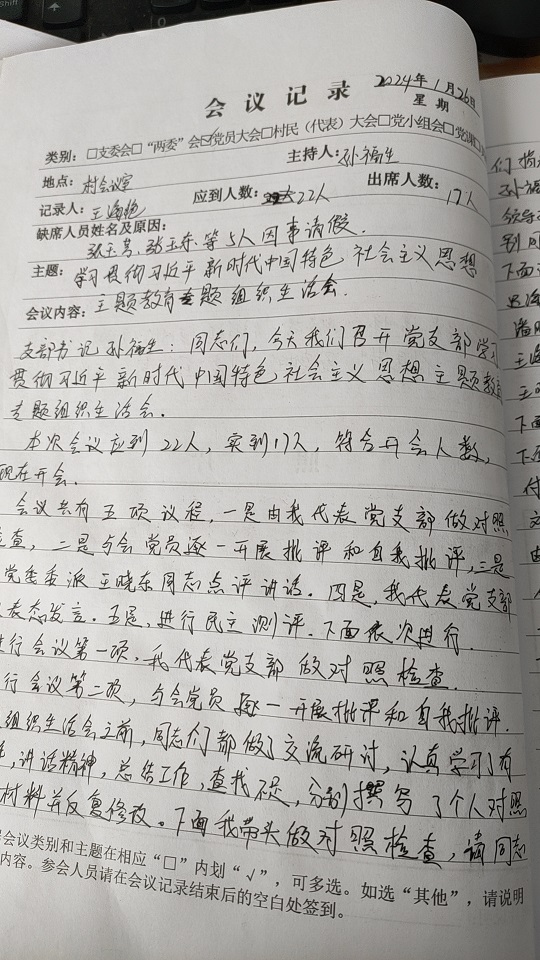 会议记录
2024年1月26日
星期
类别：□支委会□“两委”会☑党员大会□村民（代表）大会□党小组会□党课□
地点：村会议室 主持人：孙福生
记录人：王海艳 应到人数：22人 出席人数：17人
缺席人员姓名及原因：
张玉芳、张玉东等5人因事请假．
主题：学习贯彻习近平新时代中国特色社会主义思想
会议内容：主题教育专题组织生活会．
支部书记孙福生：同志们，今天我们召开党支部学习
贯彻习近平新时代中国特色社会主义思想主题教育
专题组织生活会．
本次会议应到22人，实到17人，符合开会人数，
现在开会．
会议共有五项议程，一是由我代表党支部做对照
检查，二是与会党员逐一开展批评和自我批评，三是
党委委派王晓东同志点评讲话．四是，我代表党支部
表态发言．五是，进行民主测评．下面依次进行．
行会议第一项，我代表党支部做对照检查．
行会议第二项，与会党员逐一开展批评和自我批评．
组织生活会之前，同志们都做了交流研讨，认真学习了有
讲话精神，总结工作，查找不足，分别撰写了个人对照
材料并反复修改。下面我带头做对照检查，请同志
会议类别和主题在相应“□”内划“√”，可多选。如选“其他”，请说明
内容。参会人员请在会议记录结束后的空白处签到。